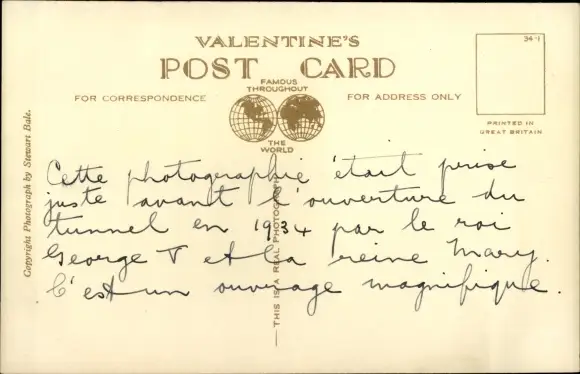 VALENTINE'S
POST CARD
FAMOUS
THROUGHOUT
THE
WORLD
FOR CORRESPONDENCE
FOR ADDRESS ONLY
34-1
PRINTED IN
GREAT BRITAIN
Copyright Photograph by Stewart Bale.
THIS IS A REAL PHOTOGRAPH
Cette photographie était prise
juste avant l'ouverture du
tunnel en 1934 par le roi
George V et la reine Mary.
C'est un ouvrage magnifique.